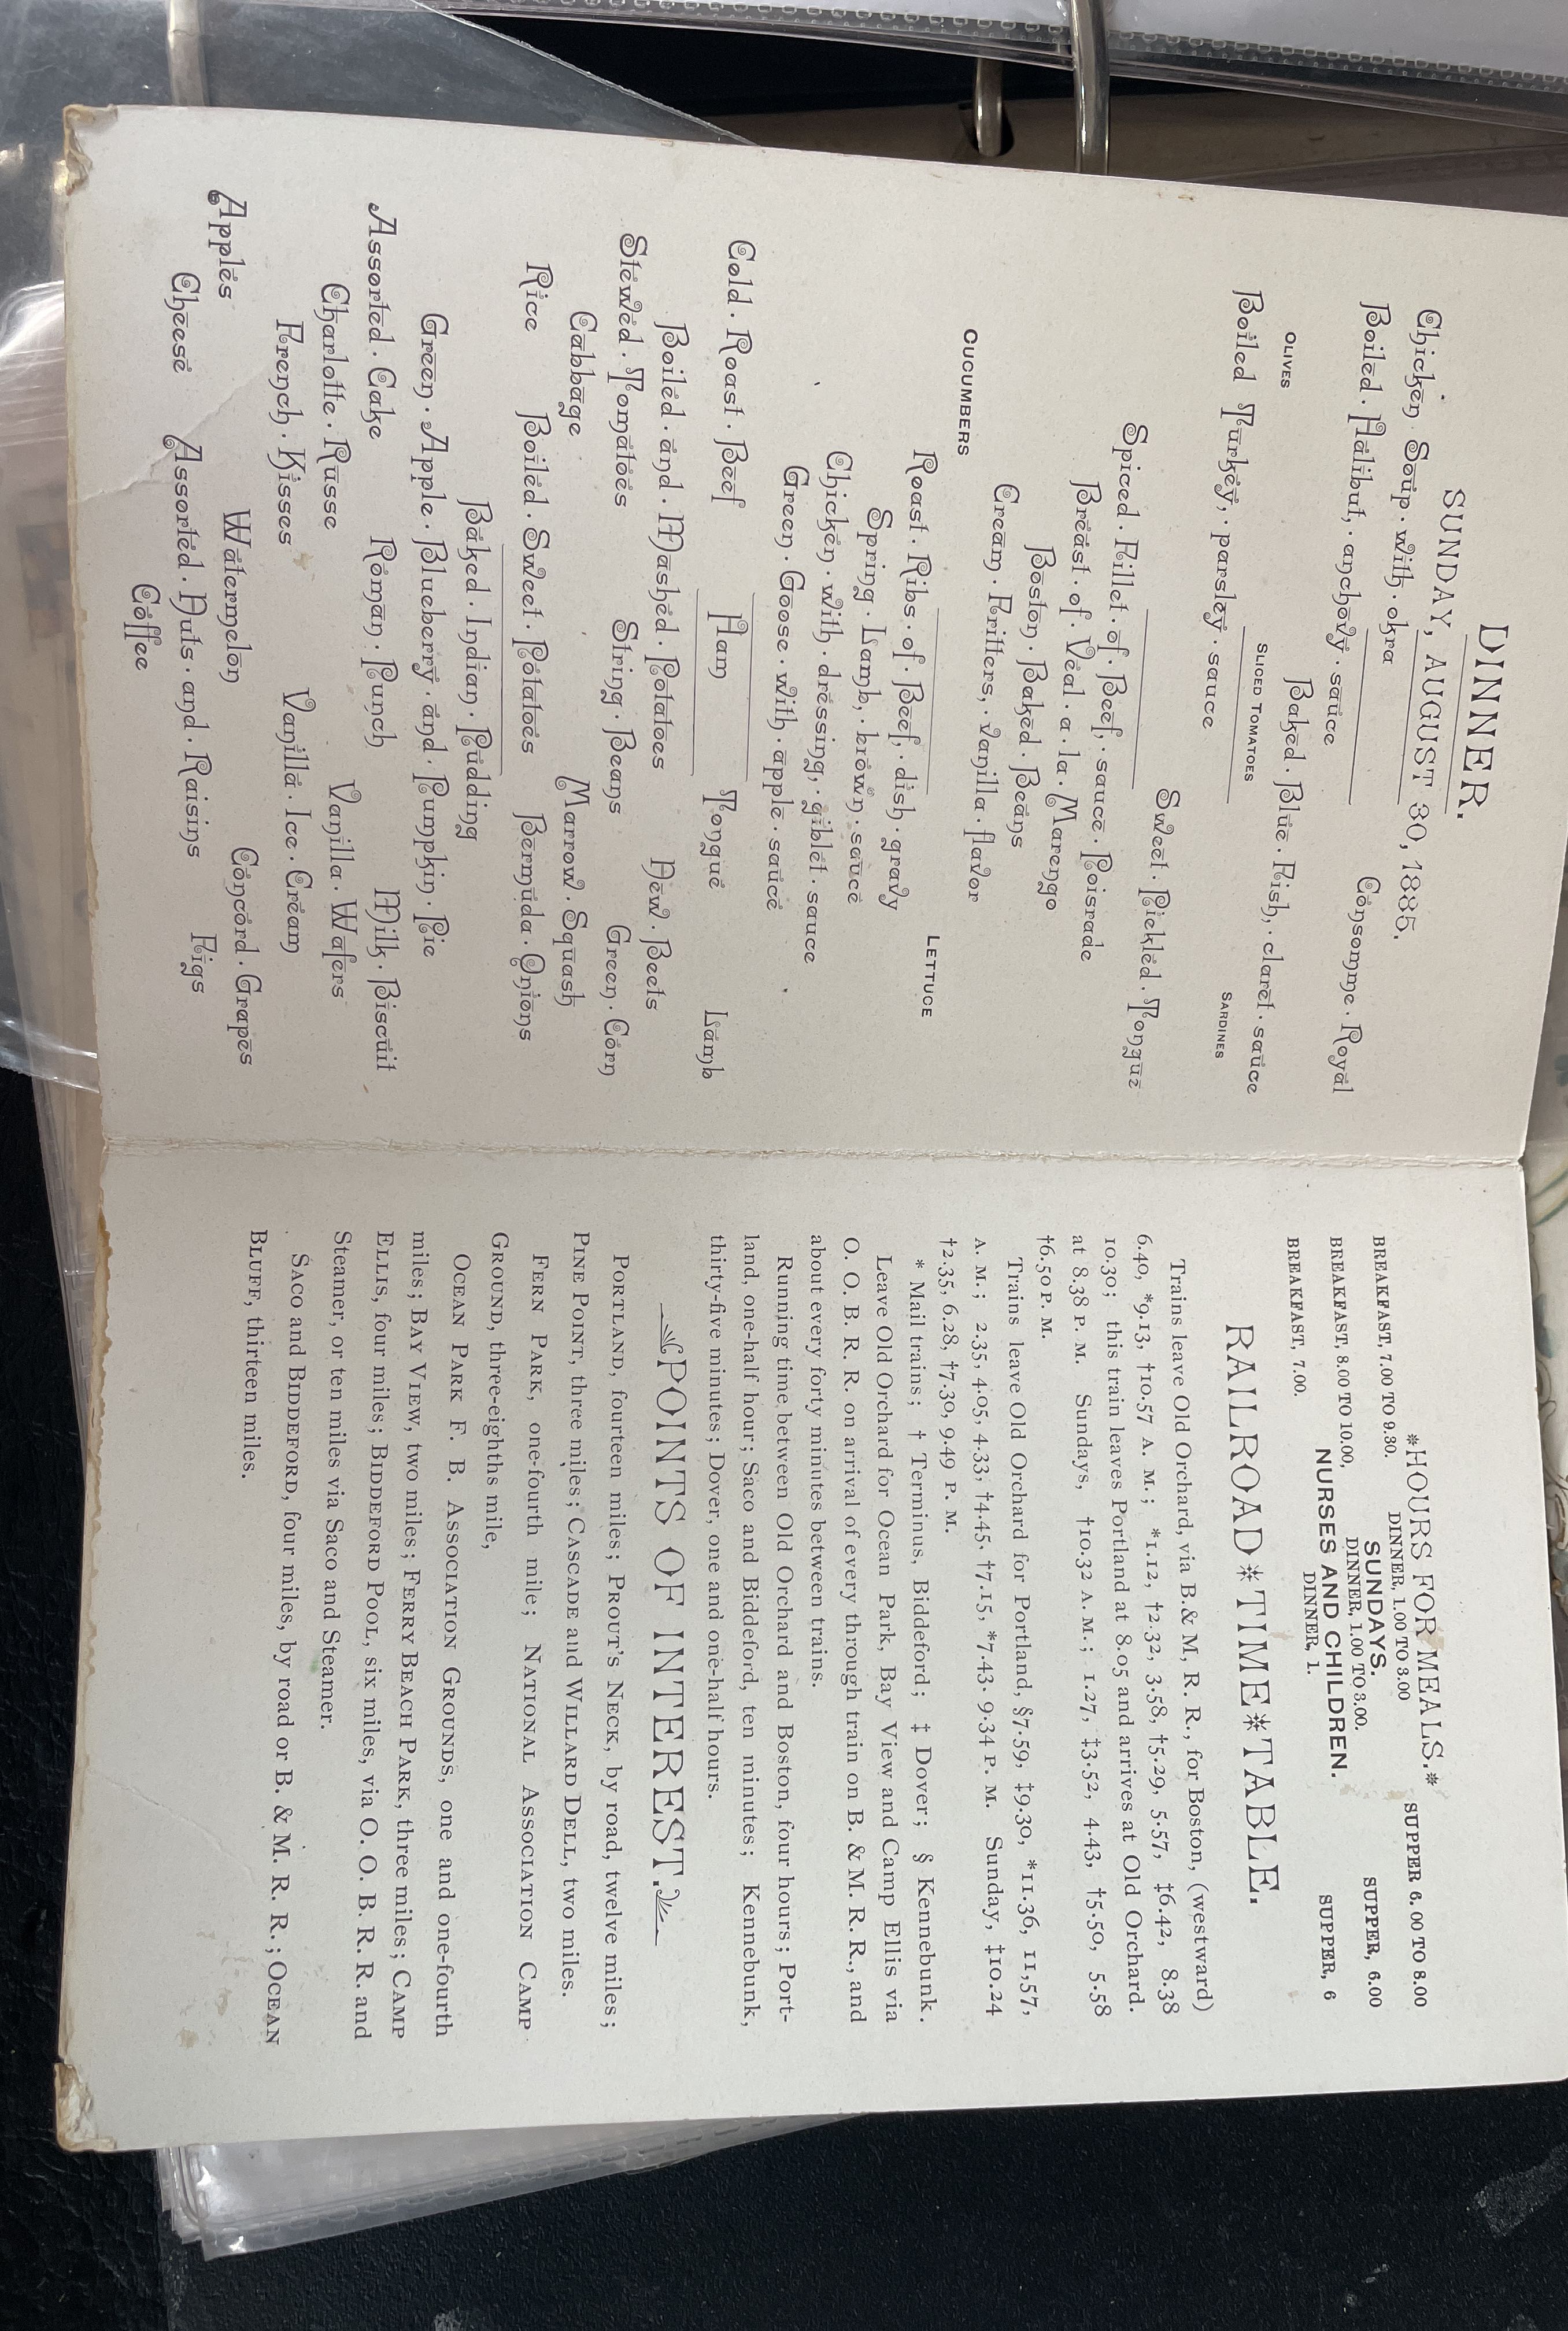 DINNER.
SUNDAY, AUGUST 30, 1885.
Chicken · Soup · with · okra Consomme · Royal
Boiled · Halibut, · anchovy · sauce
Baked · Blue · Fish, · claret · sauce
OLIVES SLICED TOMATOES SARDINES
Boiled Turkey, · parsley · sauce
Sweet · Pickled · Tongue
Spiced · Fillet · of · Beef, · sauce · Poisrade
Breast · of · Veal · a · la · Marengo
Boston · Baked · Beans
Cream · Fritters, · vanilla · flavor
CUCUMBERS LETTUCE
Roast · Ribs · of · Beef, · dish · gravy
Spring · Lamb, · brown · sauce
Chicken · with · dressing, · giblet · sauce
Green · Goose · with · apple · sauce
Cold · Roast · Beef Ham Tongue Lamb
Boiled · and · Mashed · Potatoes New · Beets
Stewed · Tomatoes String · Beans Green · Corn
Cabbage Marrow · Squash
Rice Boiled · Sweet · Potatoes Bermuda · Onions
Baked · Indian · Pudding
Green · Apple · Blueberry · and · Pumpkin · Pie
Assorted · Cake Roman · Punch Milk · Biscuit
Charlotte · Russe Vanilla · Wafers
French · Kisses Vanilla · Ice · Cream
Apples Watermelon Concord · Grapes
Cheese Assorted · Nuts · and · Raisins Figs
Coffee
*HOURS FOR MEALS.*
BREAKFAST, 7.00 TO 9.30. DINNER, 1.00 TO 3.00 SUPPER 6.00 TO 8.00
SUNDAYS.
BREAKFAST, 8.00 TO 10.00, DINNER, 1.00 TO 3.00. SUPPER, 6.00
NURSES AND CHILDREN.
BREAKFAST, 7.00. DINNER, 1. SUPPER, 6
RAILROAD*TIME*TABLE.
Trains leave Old Orchard, via B.& M, R. R., for Boston, (westward)
6.40, *9.13, †10.57 A. M.; *1.12, †2.32, 3.58, †5.29, 5.57, ‡6.42, 8.38
10.30; this train leaves Portland at 8.05 and arrives at Old Orchard.
at 8.38 P. M. Sundays, †10.32 A. M.; 1.27, ‡3.52, 4.43, †5.50, 5.58
†6.50 P. M.
Trains leave Old Orchard for Portland, §7.59, ‡9.30, *11.36, 11,57,
A. M.; 2.35, 4.05, 4.33· †4.45, †7.15, *7.43· 9.34 P. M. Sunday, ‡10.24
†2.35, 6.28, †7.39, 9.49 P. M.
* Mail trains; † Terminus, Biddeford; ‡ Dover; § Kennebunk.
Leave Old Orchard for Ocean Park, Bay View and Camp Ellis via
O. O. B. R. R. on arrival of every through train on B. & M. R. R., and
about every forty minutes between trains.
Running time between Old Orchard and Boston, four hours; Port-
land, one-half hour; Saco and Biddeford, ten minutes; Kennebunk,
thirty-five minutes; Dover, one and one-half hours.
POINTS OF INTEREST.
PORTLAND, fourteen miles; PROUT'S NECK, by road, twelve miles;
PINE POINT, three miles; CASCADE and WILLARD DELL, two miles.
FERN PARK, one-fourth mile; NATIONAL ASSOCIATION CAMP
GROUND, three-eighths mile,
OCEAN PARK F. B. ASSOCIATION GROUNDS, one and one-fourth
miles; BAY VIEW, two miles; FERRY BEACH PARK, three miles; CAMP
ELLIS, four miles; BIDDEFORD POOL, six miles, via O. O. B. R. R. and
Steamer, or ten miles via Saco and Steamer.
SACO and BIDDEFORD, four miles, by road or B. & M. R. R.; OCEAN
BLUFF, thirteen miles.